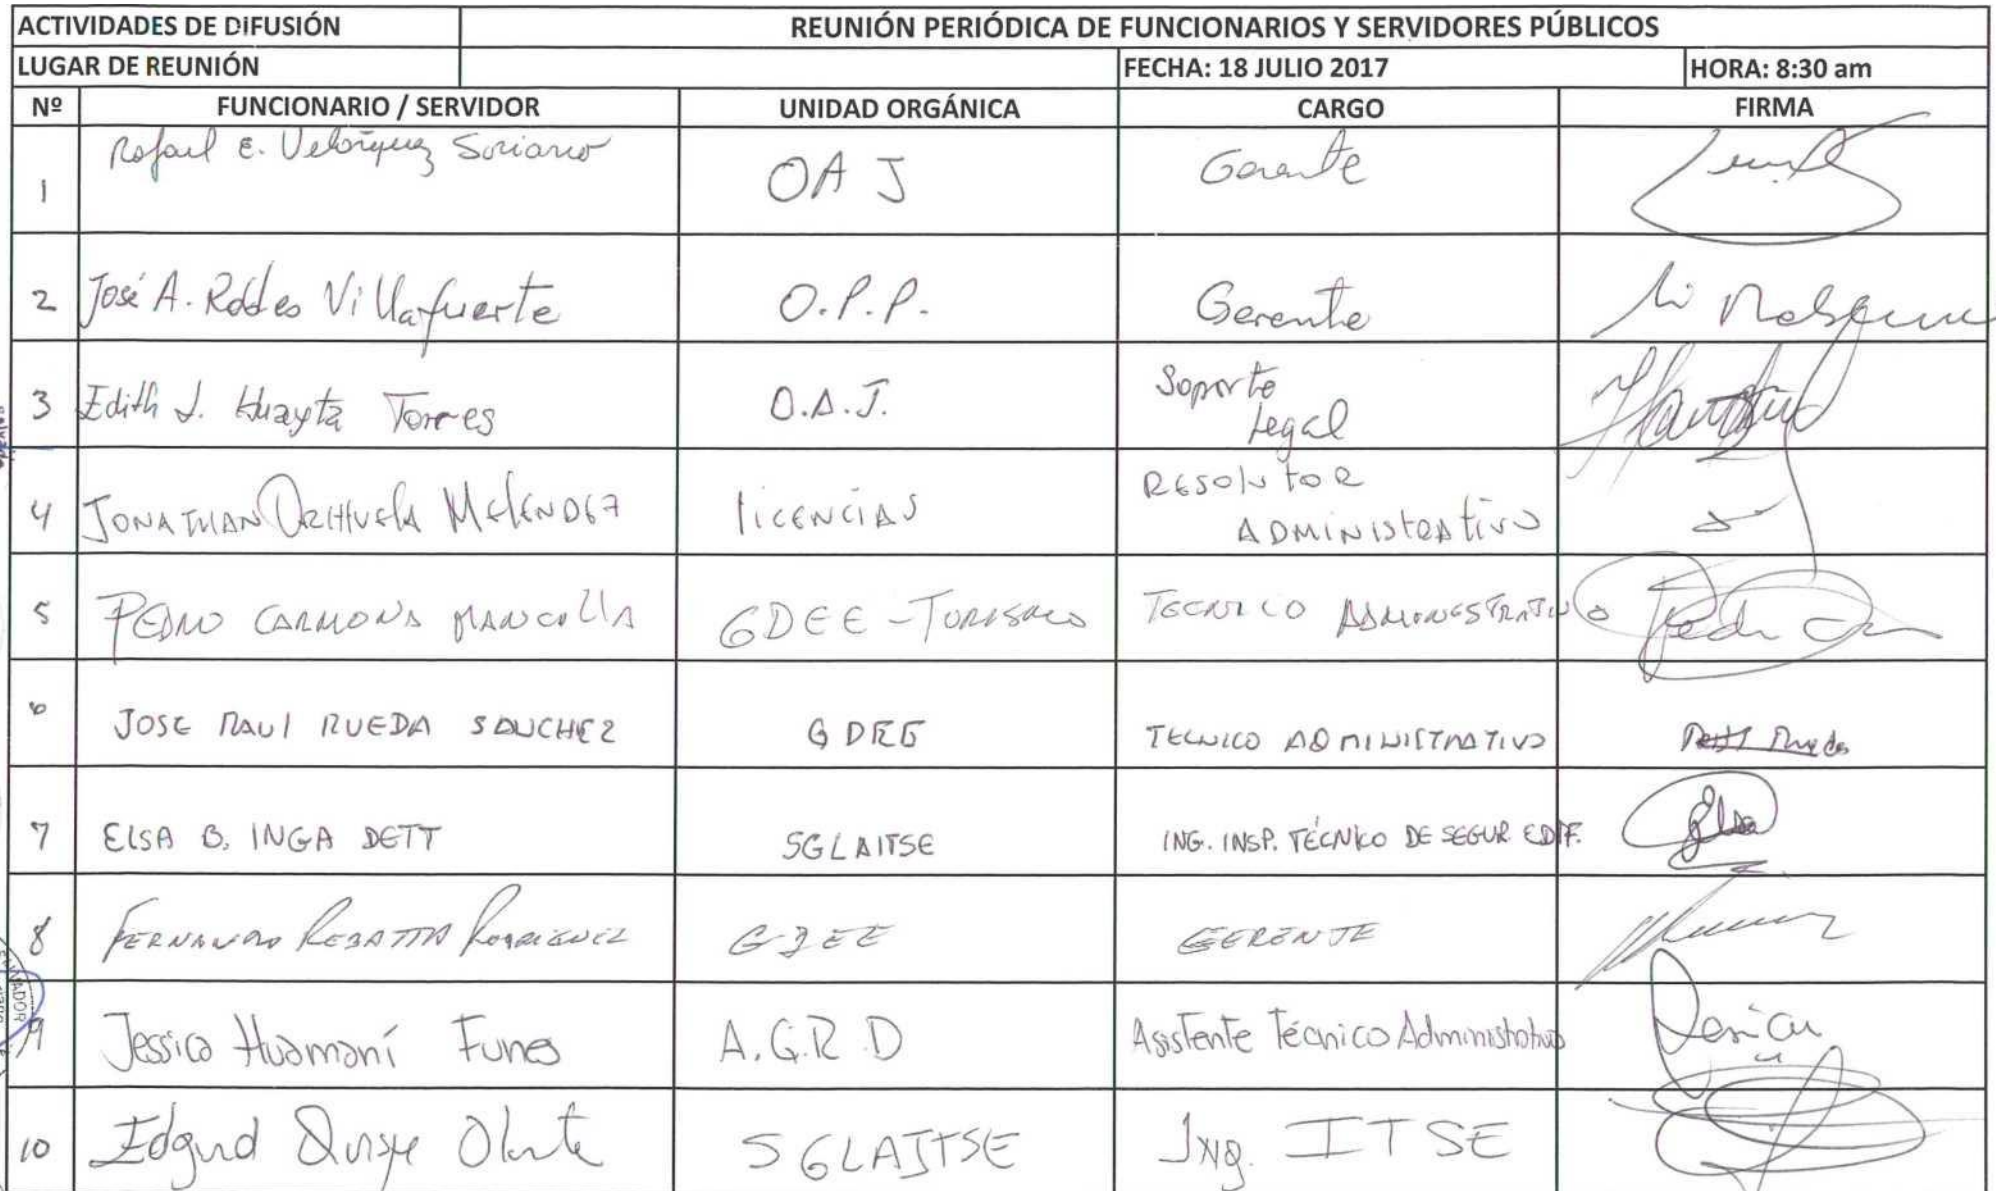 ACTIVIDADES DE DIFUSIÓN REUNIÓN PERIÓDICA DE FUNCIONARIOS Y SERVIDORES PÚBLICOS
LUGAR DE REUNIÓN FECHA: 18 JULIO 2017 HORA: 8:30 am
Nº FUNCIONARIO / SERVIDOR UNIDAD ORGÁNICA CARGO FIRMA
1 Rafael E. Velásquez Soriano OAJ Gerente
2 José A. Robles Villafuerte O.P.P. Gerente
3 Edith J. Huayta Torres O.A.J. Soporte
Legal
4 JONATHAN ORIHUELA MELENDEZ licENCIAS RESOlutor
ADMINISTRATIVO
5 PEDRO CARMONA GDEE - TURISMO TECNICO ADMINISTRATIVO
6 JOSE RAUl RUEDA SANCHEZ GDEE TECNICO ADMINISTRATIVO
7 ELSA B. INGA DETT SGLAITSE ING. INSP. TÉCNICO DE SEGUR EDIF. Elsa
8 FERNANDO REBATTA RODRIGUEZ GDEE GERENTE
9 Jessica Huamaní Funes A.G.R.D Asistente Técnico Administrativo
10 Edgard Quispe Olarte SGLAITSE Ing. ITSE